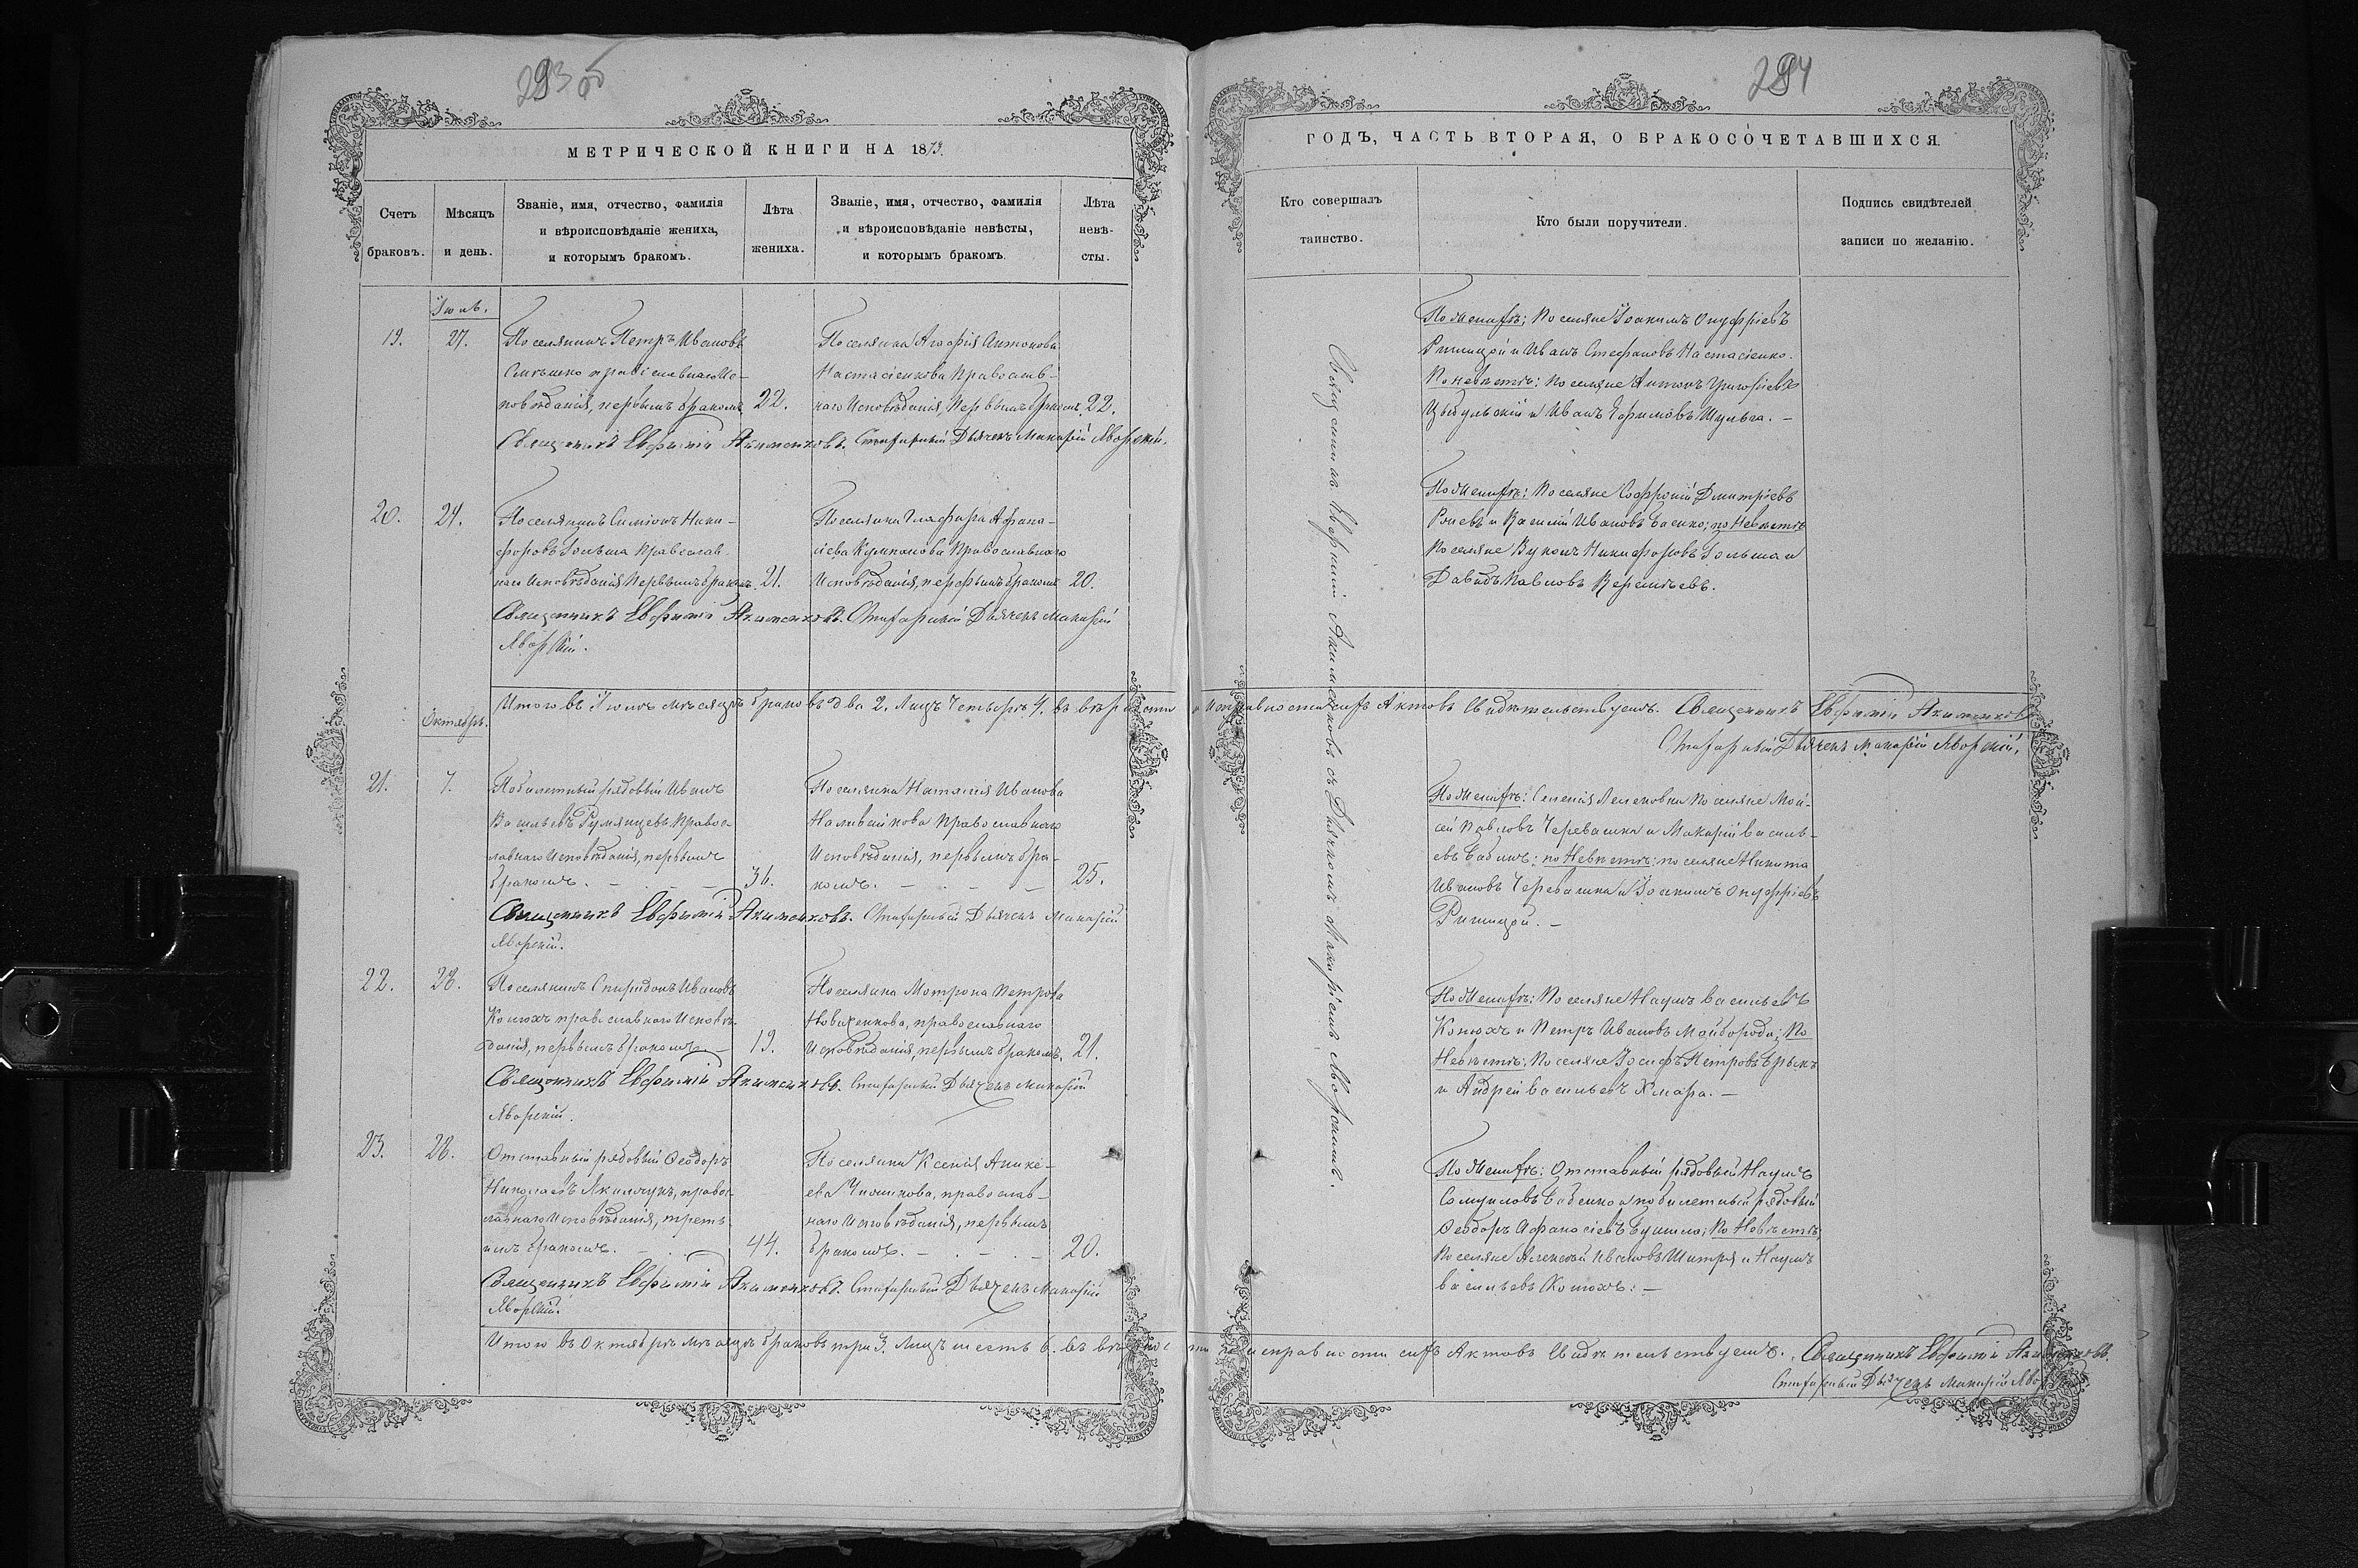 293 об
МЕТРИЧЕСКОЙ КНИГИ НА 1873.
Счетъ браковъ.
Мѣсяцъ и день.
Званіе, имя, отчество, фамилія
и вѣроисповѣданіе жениха,
и которымъ бракомъ.
Лѣта
жениха.
Званіе, имя, отчество, фамилія
и вѣроисповѣданіе невѣсты,
и которымъ бракомъ.
Лѣта
невѣ-
сты.
19.
27.
Поселянинъ Петръ Ивановъ
православнаго Ис-
повѣданія, первымъ бракомъ
22.
Поселянка Агафія Антонова
Настасіенкова Православ-
наго Исповѣданія, Первымъ бракомъ
22.
Священникъ Евфимій Акименковъ. Дьячекъ Макарій Яворскій.
20.
24.
Поселянинъ Симіонъ Ники-
форовъ Гольша Православ-
наго Исповѣданія Первымъ бракомъ
21.
Поселянка Глафира Афана-
сіева Православнаго
Исповѣданія, первымъ бракомъ
20.
Священникъ Евфимій Акименковъ. Дьячекъ Макарій
Яворскій.
Итого въ мѣсяцѣ браковъ два 2. Лицъ Четыре 4. въ вѣрности
Октябрь.
21.
7.
Побилетный рядовый Иванъ
Васильевъ Румянцевъ Правос-
лавнаго Исповѣданія, первымъ
бракомъ.
36.
Поселянка Наталія Иванова
Православнаго
Исповѣданія, первымъ бра-
комъ.
25.
Священникъ Евфимій Акименковъ. Дьячекъ Макарій
Яворскій.
22.
28.
Поселянинъ Спиридонъ Ивановъ
Конюхъ православнаго Исповѣ-
данія, первымъ бракомъ
19.
Поселянка Мотрона Петрова
православнаго
Исповѣданія, первымъ бракомъ.
21.
Священникъ Евфимій Акименковъ. Дьячекъ Макарій
Яворскій.
23.
28.
Отставный рядовый Ѳеодоръ
Николаевъ Якимчукъ, право-
славнаго Исповѣданія, треть-
имъ бракомъ.
44.
Поселянка Ксенія Аникѣ-
ева православ-
наго Исповѣданія, первымъ
бракомъ.
20.
Священникъ Евфимій Акименковъ. Дьячекъ Макарій
Яворскій.
Итого въ Октябрѣ мѣсяцѣ браковъ три 3. Лицъ шесть 6. въ
284
ГОДЪ, ЧАСТЬ ВТОРАЯ, О БРАКОСОЧЕТАВШИХСЯ.
Кто совершалъ
таинство.
Кто были поручители.
Подпись свидѣтелей
записи по желанію.
Священникъ Евфимій Акименковъ съ Дьячкомъ Макаріемъ Яворскимъ.
По Женихѣ: Поселяне Іоакимъ Онуфріевъ
и Иванъ Стефановъ Настасіенко.
По невѣстѣ: поселяне Антонъ Григоріевъ
Цыбульскій и Иванъ Ефимовъ Шульга.
По Женихѣ: Поселяне Софроній Дмитріевъ
и Василій Ивановъ по Невѣстѣ
поселяне Вуколъ Никифоровъ Гольша и
Давидъ Павловъ
исправности сихъ Актовъ Свидѣтельствуемъ. Священникъ Евфимій Акименковъ
Дьячекъ Макарій Яворскій.
По Женихѣ: поселяне Мои-
сей Павловъ Черевашка и Макарій Василь-
евъ по Невѣстѣ: поселяне Никита
Ивановъ Черевашка и Іоакимъ Онуфріевъ
По Женихѣ: Поселяне Наумъ Васильевъ
Конюхъ и Петръ Ивановъ Майборода; По
Невѣстѣ: поселяне Іосифъ Петровъ
и Андрей Васильевъ Хмара.
По Женихѣ: Отставный рядовый Наумъ
Самуиловъ Бабенко и побилетный рядовый
Ѳеодоръ Афанасіевъ По Невѣстѣ
поселяне Алексѣй Ивановъ и Наумъ
Васильевъ Конюхъ.
исправности сихъ Актовъ Свидѣтельствуемъ. Священникъ Евфимій Акименковъ.
Дьячекъ Макарій